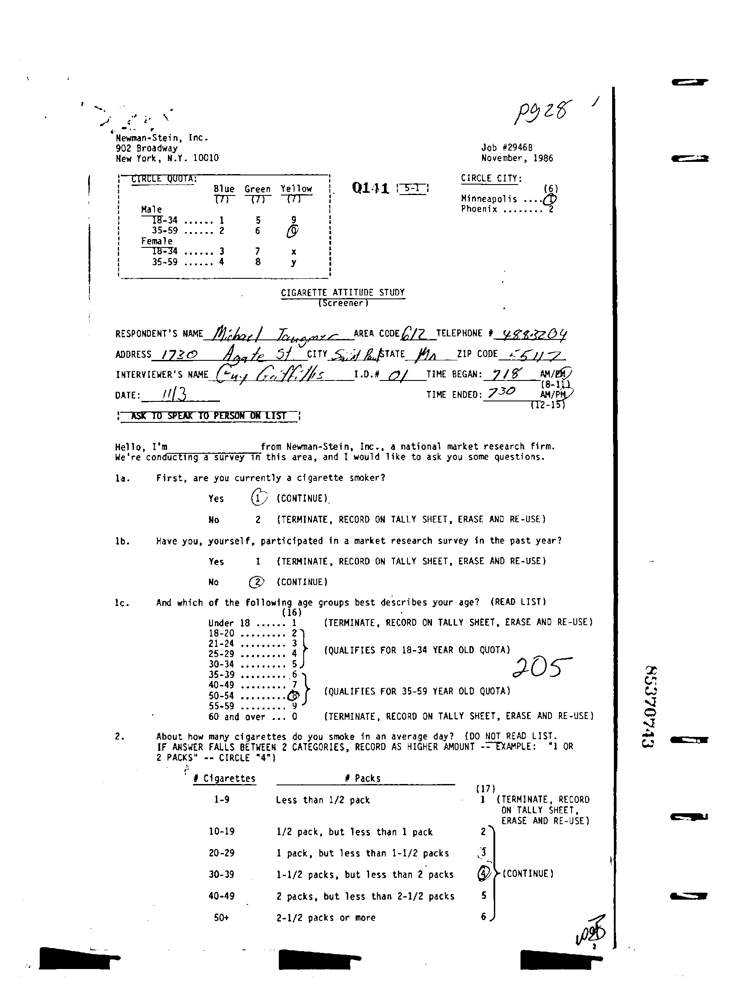 pg 28
Newman-Stein, Inc.
902 Broadway
New York, N.Y. 10010
Job #2946B
November, 1986
CIRCLE QUOTA:
Blue Green Yellow
(7) (7) (7)
Male
18-34 ...... 1 5 9
35-59 ...... 2 6 0
Female
18-34 ...... 3 7 x
35-59 ...... 4 8 y
Q141 5-1
CIRCLE CITY:
(6)
Minneapolis .... 1
Phoenix ........ 2
CIGARETTE ATTITUDE STUDY
(Screener)
RESPONDENT'S NAME Michael AREA CODE 612 TELEPHONE # 4883204
ADDRESS 1730 Agate St CITY Saint Paul STATE Mn ZIP CODE 55117
INTERVIEWER'S NAME Guy Griffiths I.D.# 01 TIME BEGAN: 718 AM/PM
(8-11)
DATE: 11/3 TIME ENDED: 730 AM/PM
(12-15)
ASK TO SPEAK TO PERSON ON LIST
Hello, I'm from Newman-Stein, Inc., a national market research firm.
We're conducting a survey in this area, and I would like to ask you some questions.
1a. First, are you currently a cigarette smoker?
Yes 1 (CONTINUE)
No 2 (TERMINATE, RECORD ON TALLY SHEET, ERASE AND RE-USE)
1b. Have you, yourself, participated in a market research survey in the past year?
Yes 1 (TERMINATE, RECORD ON TALLY SHEET, ERASE AND RE-USE)
No 2 (CONTINUE)
1c. And which of the following age groups best describes your age? (READ LIST)
(16)
Under 18 ...... 1 (TERMINATE, RECORD ON TALLY SHEET, ERASE AND RE-USE)
18-20 ......... 2
21-24 ......... 3
25-29 ......... 4 (QUALIFIES FOR 18-34 YEAR OLD QUOTA)
30-34 ......... 5
205
35-39 ......... 6
40-49 ......... 7
50-54 ......... 8 (QUALIFIES FOR 35-59 YEAR OLD QUOTA)
55-59 ......... 9
60 and over ... 0 (TERMINATE, RECORD ON TALLY SHEET, ERASE AND RE-USE)
85370743
2. About how many cigarettes do you smoke in an average day? (DO NOT READ LIST.
IF ANSWER FALLS BETWEEN 2 CATEGORIES, RECORD AS HIGHER AMOUNT -- EXAMPLE: "1 OR
2 PACKS" -- CIRCLE "4")
# Cigarettes # Packs
(17)
1-9 Less than 1/2 pack 1 (TERMINATE, RECORD
ON TALLY SHEET,
ERASE AND RE-USE)
10-19 1/2 pack, but less than 1 pack 2
20-29 1 pack, but less than 1-1/2 packs 3
30-39 1-1/2 packs, but less than 2 packs 4 (CONTINUE)
40-49 2 packs, but less than 2-1/2 packs 5
50+ 2-1/2 packs or more 6